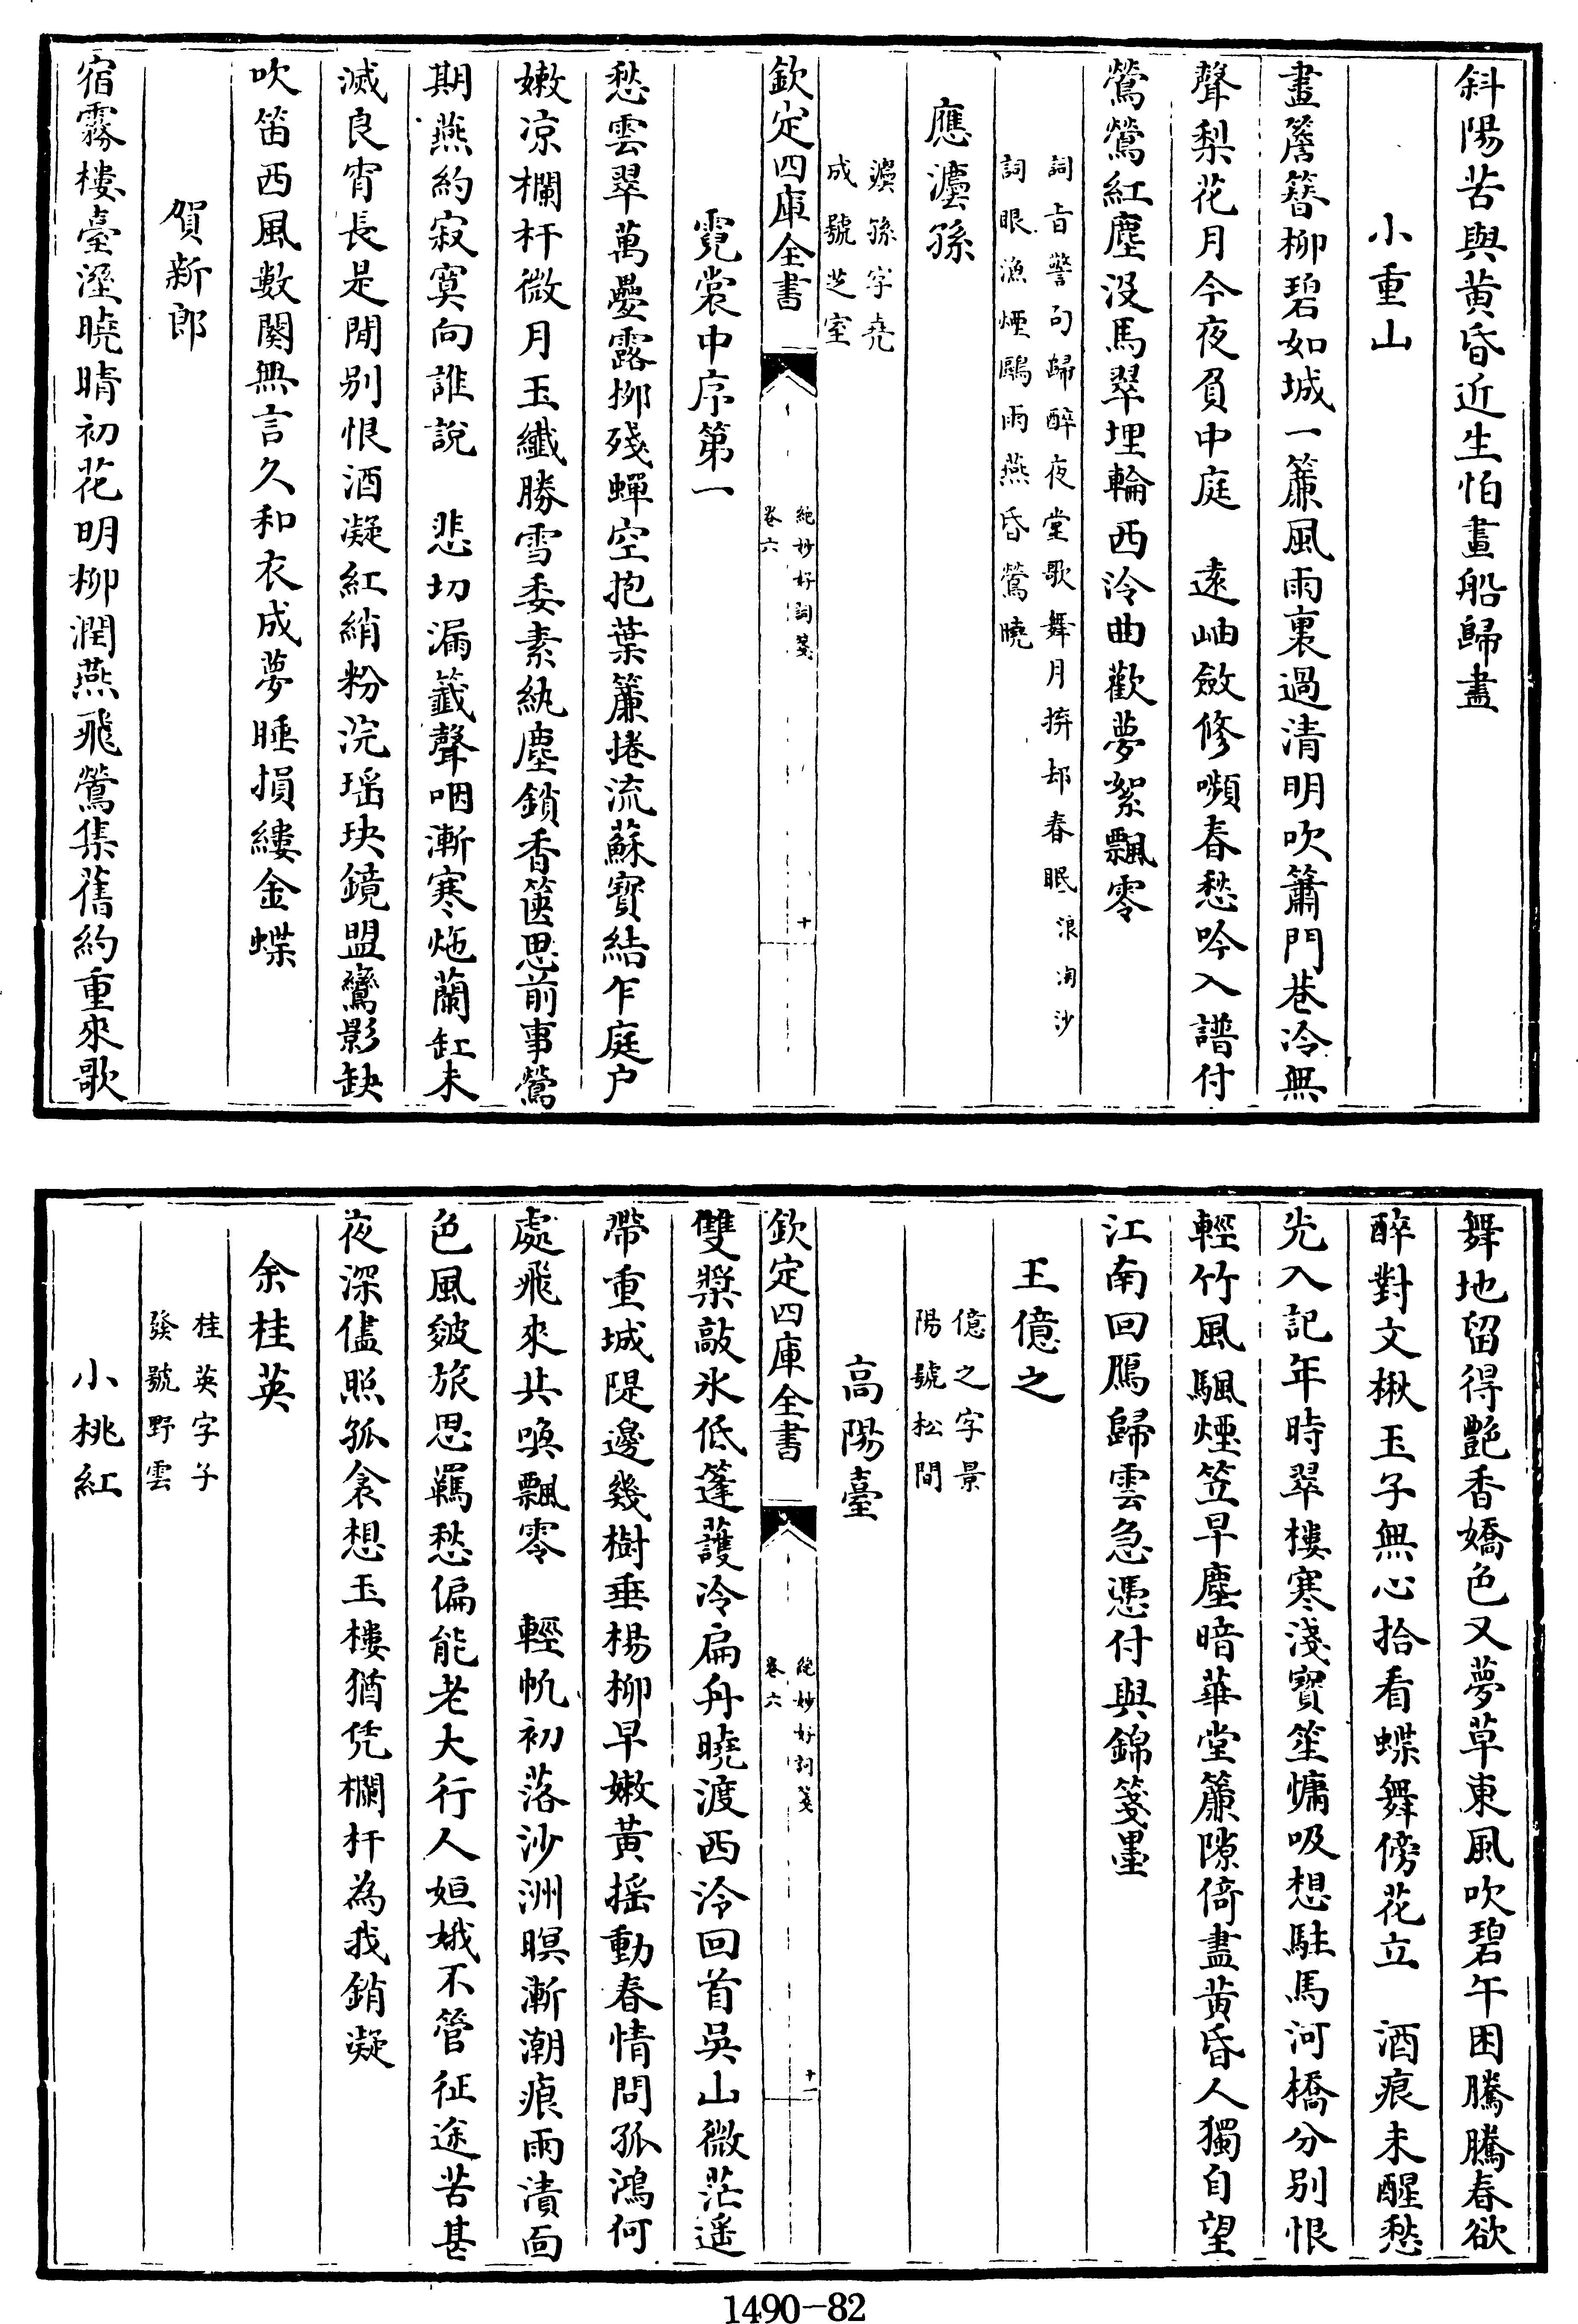 斜陽苦與黄昏近生怕畫船歸盡
小重山
畫簷簪柳碧如城一簾風雨裏過清明吹簫門巷冷無
聲梨花月今夜負中庭　遠岫斂修嚬春愁吟入譜付
鶯鶯紅塵没馬翠埋輪西泠曲歡夢絮飄零
詞旨警句歸醉夜堂歌舞月拚却春眠浪淘沙
詞眼漁煙鷗雨燕昏鶯曉
應瀍孫
瀍孫字堯
成號芝室
欽定四庫全書
絶妙好詞箋
卷六
十
霓裳中序第一
愁雲翠萬疊露柳殘蟬空抱葉簾捲流蘇寳結乍庭户
嫩凉欄杆微月玉纖勝雪委素紈塵鎖香篋思前事鶯
期燕約寂寞向誰說　悲切漏籤聲咽漸寒炧蘭缸未
滅良宵長是閒别恨酒凝紅綃粉涴瑶玦鏡盟鸞影缺
吹笛西風數闋無言久和衣成夢睡損縷金蝶
賀新郎
宿霧樓臺溼曉晴初花明柳潤燕飛鶯集舊約重來歌
舞地留得艶香嬌色又夢草東風吹碧午困騰騰春欲
醉對文楸玉子無心拾看蝶舞傍花立　酒痕未醒愁
先入記年時翠樓寒淺寳笙慵吸想駐馬河橋分别恨
輕竹風颿煙笠早塵暗華堂簾隙倚盡黄昏人獨自望
江南回鴈歸雲急憑付與錦箋墨
王億之
億之字景
陽號松間
高陽臺
欽定四庫全書
絶妙好詞箋
卷六
十一
雙槳敲氷低篷護冷扁舟曉渡西泠回首吳山微茫遥
帶重城隄邊幾樹垂楊柳早嫩黃摇動春情問孤鴻何
處飛來共喚飄零　輕帆初落沙洲暝漸潮痕雨漬面
色風皴旅思羈愁偏能老大行人姮娥不管征途苦甚
夜深儘照孤衾想玉樓猶凭欄杆為我銷凝
余桂英
桂英字子
發號野雲
小桃紅
1490-82